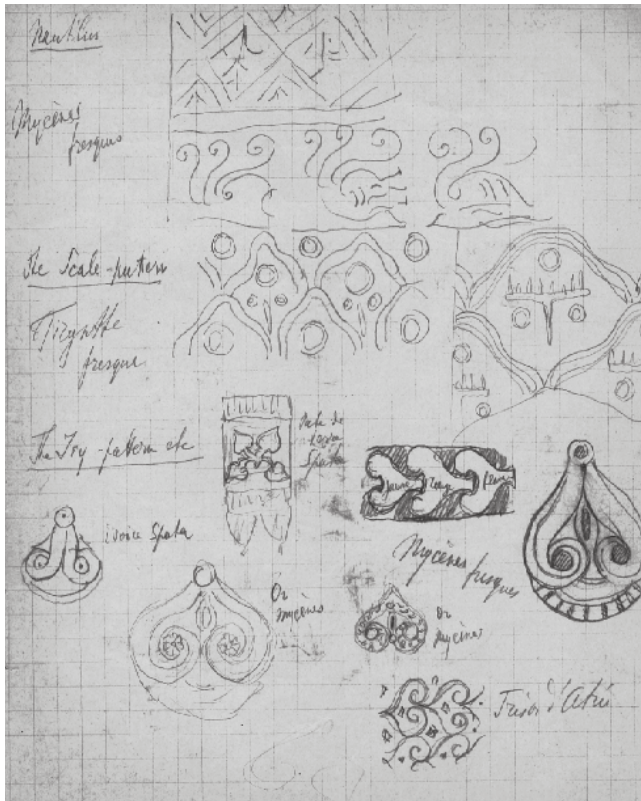 Nautilus
Mycènes
fresques
The Scale-pattern
Tirynthe
fresque
The Ivy-pattern etc
Pate de
Spata
jaune
rouge
bleu
ivoire Spata
Mycènes fresques
Or
mycènes
Or
mycènes
Trésor d'Atrée